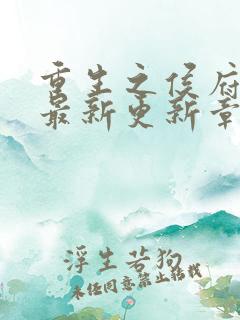 重生之侯府
最新更新章
浮生若狗
未经同意禁止转载